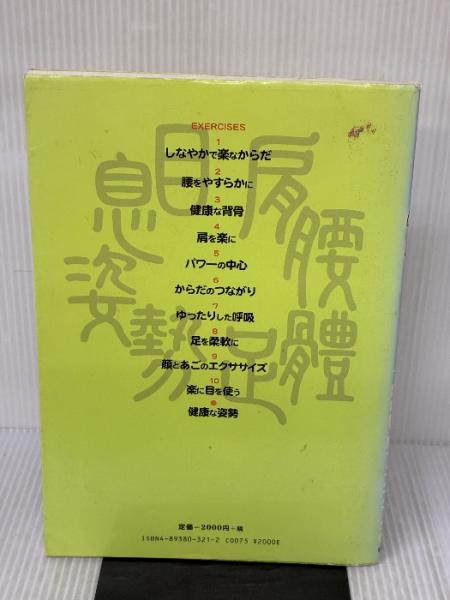 EXERCISES
1
しなやかで楽なからだ
2
腰をやすらかに
3
健康な背骨
4
肩を楽に
5
パワーの中心
6
からだのつながり
7
ゆったりした呼吸
8
足を柔軟に
9
顔とあごのエクササイズ
10
楽に目を使う
●
健康な姿勢
息 目 肩 腰
姿 勢 足 體
定価=2000円+税
ISBN4-89380-321-2 C0075 ¥2000E